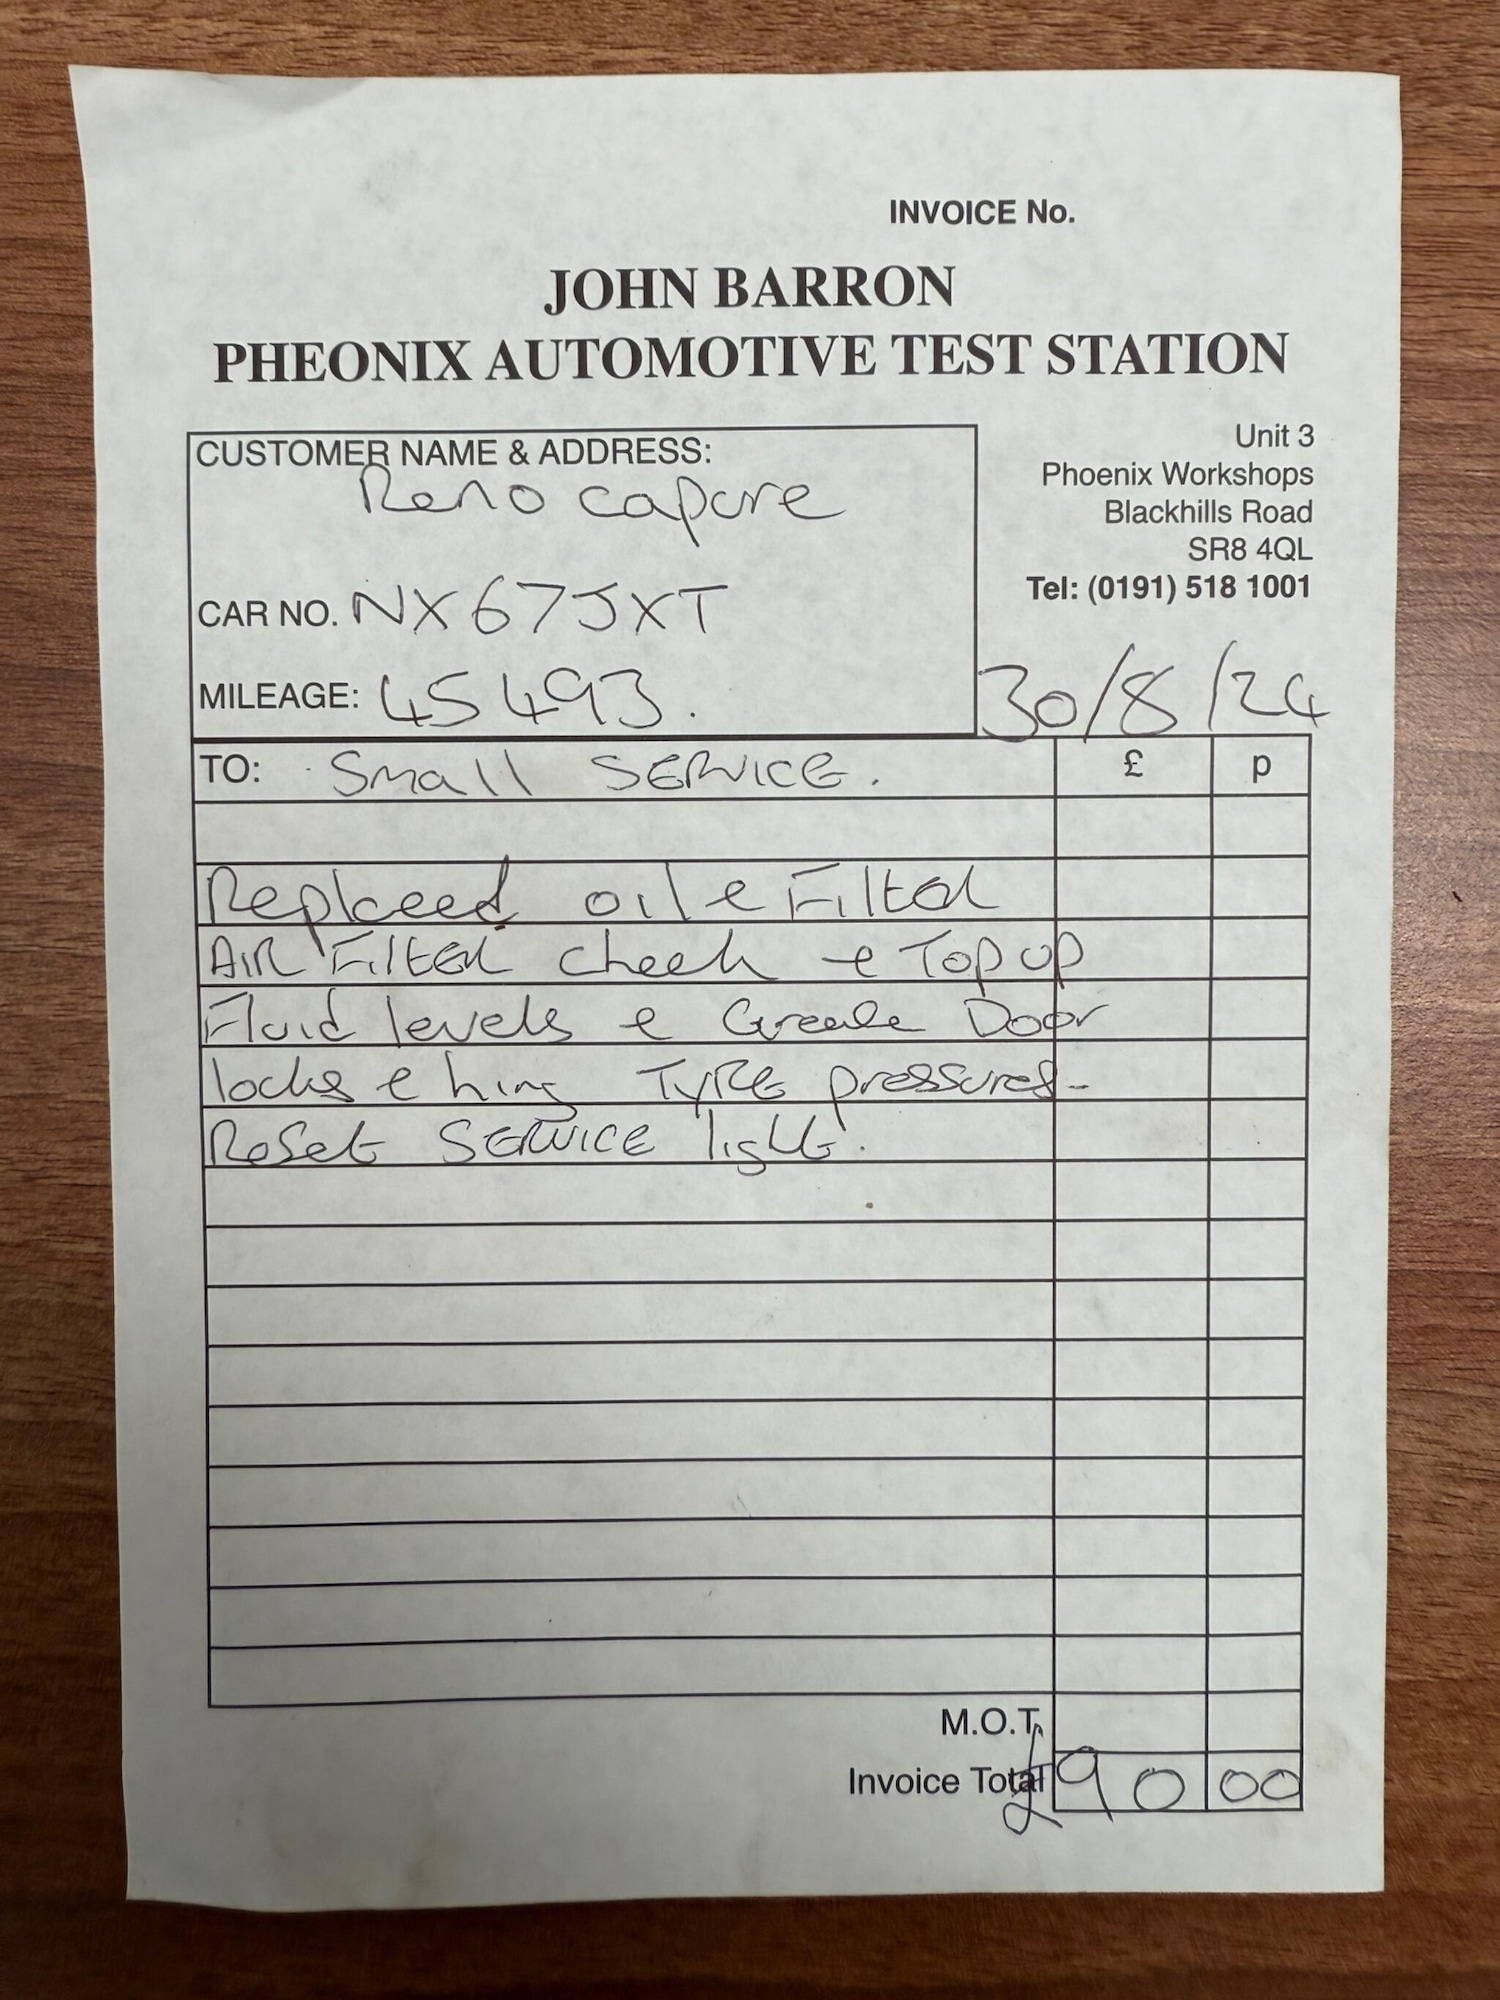 INVOICE No.
JOHN BARRON
PHEONIX AUTOMOTIVE TEST STATION
CUSTOMER NAME & ADDRESS:
Reno capure
CAR NO. NX67JXT
MILEAGE: 45493.
Unit 3
Phoenix Workshops
Blackhills Road
SR8 4QL
Tel: (0191) 518 1001
30/8/24
TO: Small SERVICE. £ p
Replaced oil & Filter
AIR Filter check & Top up
Fluid levels & Grease Door
locks & hing TYRE pressures-
Reset SERVICE light.
M.O.T.
Invoice Total £90 00